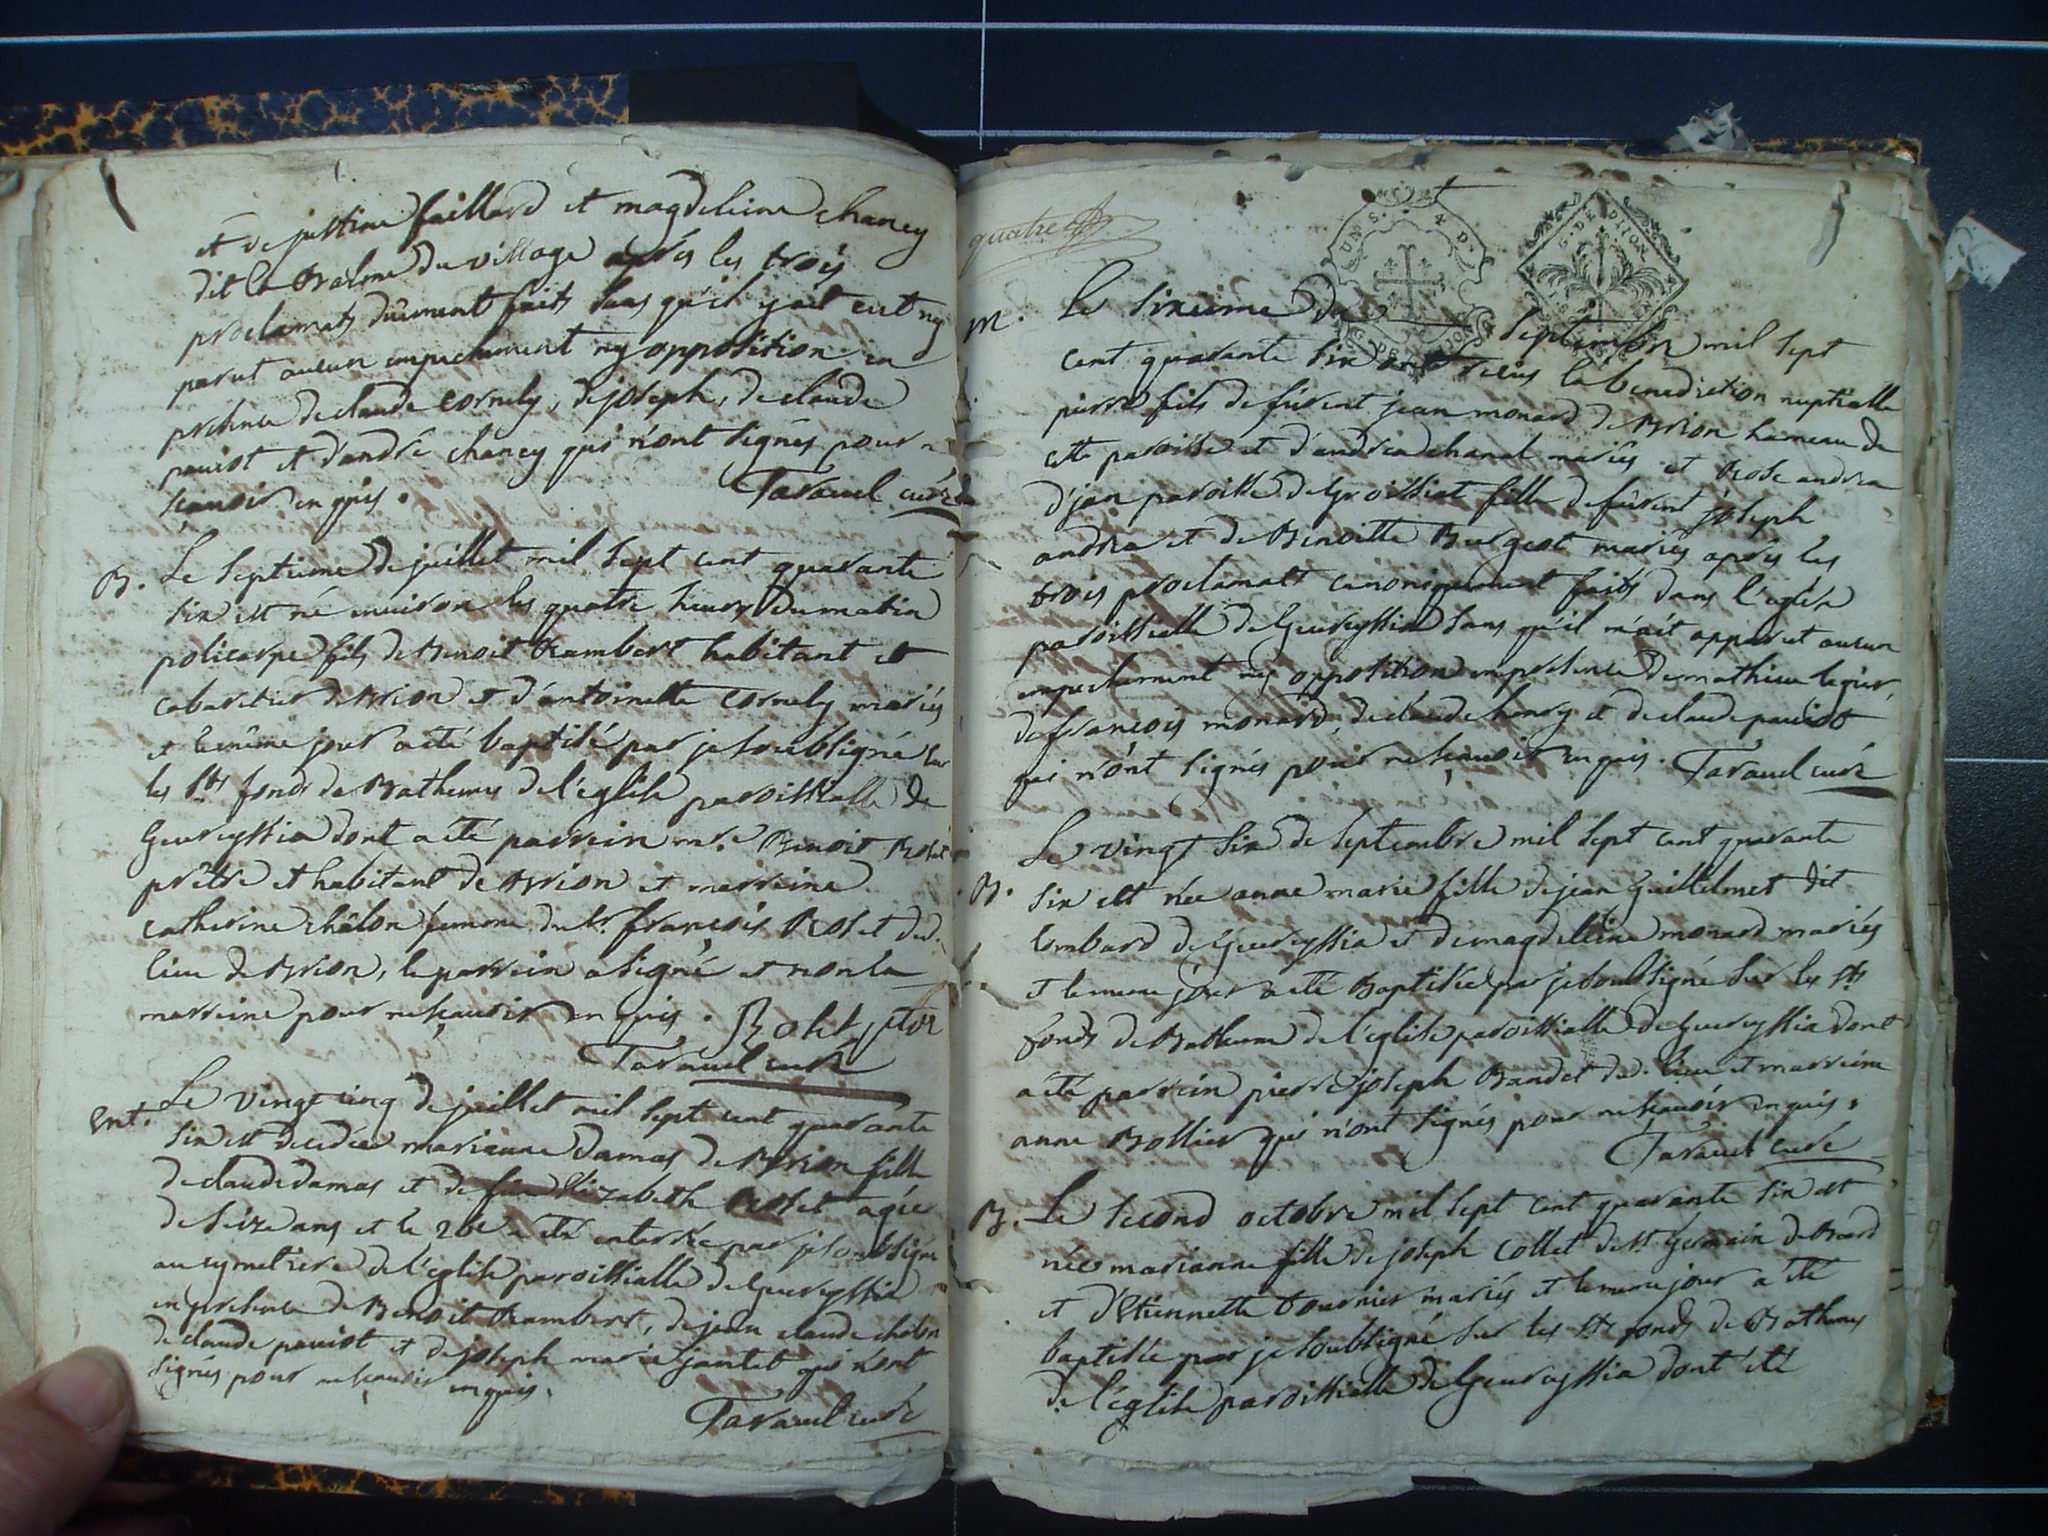 et de justine faillard et magdeleine chaney
dit la Balme du village après les trois
proclamats dûement faits sans qu'il y ait eut ny
parut aucun empechement ny opposition en
presence de claude cornely, de joseph, de claude
pauiot et d'andré chaney qui n'ont signés pour ne
scauoir enquis.
Tarauel curé
B. Le septieme de juillet mil sept cent quarante
six est né enuiron les quatre heures du matin
policarpe fils de Benoit Rambert habitant et
cabaretier d'Arion et d'antoinette cornely mariés
et le même jour a été baptisé par je soubsigné sur
les sts fonds de Bathemes de l'eglise paroissialle de
Geureyssia dont a été parrein mre Benoit Rolet
prêtre et habitant de Brion et marreine
catherine châlon femme du sr. françois Rolet dud.
lieu de Brion, le parrein a signé et non la
marreine pour ne scauoir enquis. Rolet ptre
Tarauel curé
Ent. Le vingt cinq de juillet mil sept cent quarante
six est decedée marianne Damas de Brion fille
de claude damas et de Elizabeth Rolet agée
de seize ans et le 26e a été enterrée par je soubsigné
au cymetiere de l'eglise paroissialle de Geureyssia
en presence de Benoit Rambert, de jean claude châlon
de claude pauiot et de joseph marie jantet qui n'ont
signés pour ne scauoir enquis.
Tarauel curé
quatre
UN. S. 4. D.
G. DE DIJON
M. Le sixieme de septembre mil sept
cent quarante six ont receus la benediction nuptialle
pierre fils de furent jean monard de Brion hameau de
cette paroisse et d'andrea chanel mariés et Rose andrea
d'jan paroisse de Groissiat fille de fûrent joseph
andrea et de Benoitte Burgeot mariés après les
trois proclamatt canoniquement faits dans l'eglise
paroissialle de Geureyssia sans qu'il m'ait apparut aucun
empechement ny opposition en presence de mathieu legier,
de françois monard, de claude henry et de claude pauiot
qui n'ont signés pour ne scauoir enquis. Tarauel curé
B. Le vingt six de septembre mil sept cent quarante
six est née anne marie fille de jean Guillelmet dit
Lombard de Geureyssia et de magdeleine monard mariés
et le meme jour a été Baptisée par je soubsigné sur les sts
fonds de Batheme de l'eglise paroissialle de Geureyssia dont
a été parrein pierre joseph Bandet dud. lieu et marreine
anne Bollier qui n'ont signés pour ne scauoir enquis.
Tarauel curé
B. Le second octobre mil sept cent quarante six est
née marianne fille de joseph Collet de st Germain de Beard
et d'Etiennette tournier mariés et le meme jour a été
baptisée par je soubsigné sur les sts fonds de Bathemes
de l'église paroissialle de Geureyssia dont été